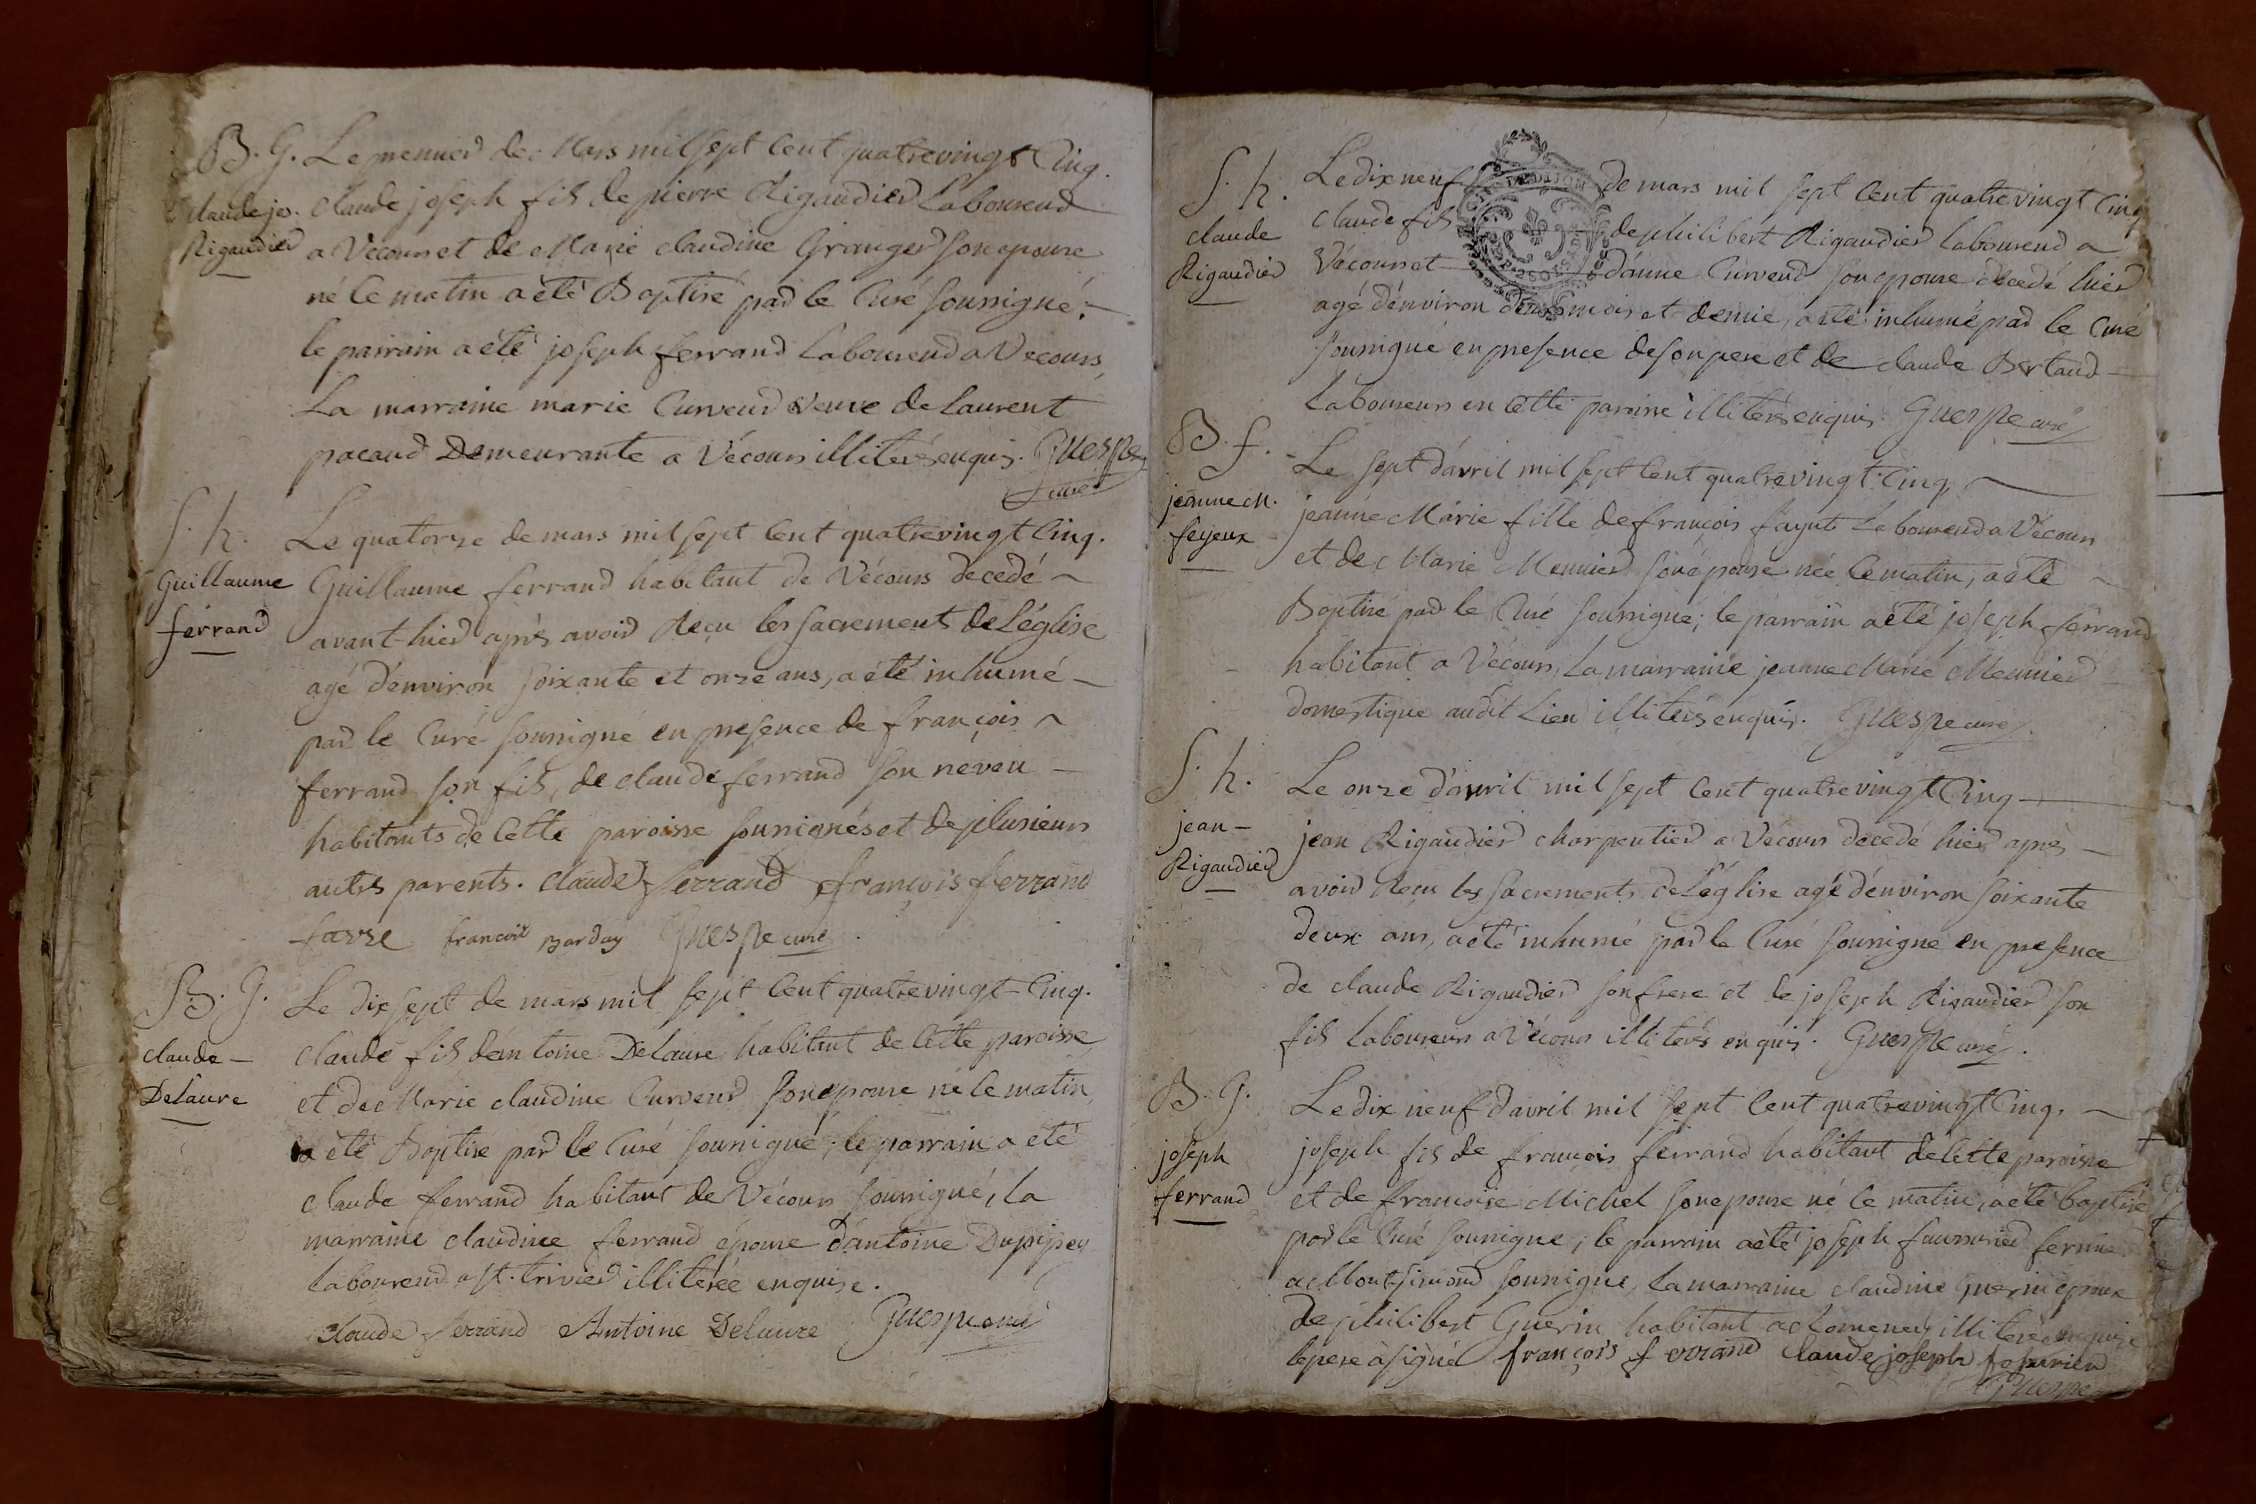 B. G. Le premier de Mars mil sept Cent quatre vingt Cinq.
claude jos. claude joseph fils de pierre Rigaudier Laboureur
Rigaudier a Vécours et de Marie claudine Granger son epouse
né le matin a été Baptisé par le Curé soussigné;
le parrain a été joseph ferrand laboureur a Vecours,
La marraine marie Curveur veuve de laurent
pacaud Demeurante a Vécours illiterés enquis. Guespe
curé
S. h. Le quatorze de mars mil sept Cent quatre vingt Cinq.
Guillaume Guillaume ferrand habitant de Vécours decedé
ferrand avant-hier après avoir Reçu les sacrements de L'église
agé d'environ soixante et onze ans, a été inhumé
par le Curé soussigné en presence de françois
ferrand son fils, de claude ferrand son neveu
habitants de Cette paroisse soussignés et de plusieurs
autres parents. claude ferrand françois ferrand
favre francoix Barday Guespe curé.
B. G. Le dix sept de mars mil sept Cent quatre vingt-Cinq.
claude claude fils d'antoine Delaure habitant de Cette paroisse
Delaure et de Marie claudine Curveur son epouse né le matin
a été Baptisé par le Curé soussigné; le parrain a été
claude ferrand habitant de Vécours soussigné, la
marraine claudine ferrand épouse d'antoine Dupipey
laboureur a st. trivier illiterée enquise.
claude ferrand Antoine Delaure Guespe curé
S. h. Le dix neuf de mars mil sept Cent quatre vingt Cinq
claude claude fils de philibert Rigaudier laboureur a
Rigaudier Vécours et d'anne Curveur son epouse decedé hier
agé d'environ deux mois et demie, a été inhumé par le Curé
soussigné en presence de son pere et de claude Bertaud
laboureurs en Cette paroisse illiterés enquis. Guespe curé
B. f. Le sept d'avril mil sept Cent quatre vingt Cinq
jeanne M. jeanne Marie fille de françois fayeut Laboureur a Vécours
feyeux et de Marie Meunier son épouse née le matin, a été
Baptisé par le Curé soussigné; le parrain a été joseph ferrand
habitant a Vécours, la marraine jeanne Marie Meunier
domestique audit Lieu illiterés enquis. Guespe curé.
S. h. Le onze d'avril mil sept Cent quatre vingt Cinq
jean jean Rigaudier charpentier a Vecours decedé hier après
Rigaudier avoir Reçu les sacrements de L'église agé d'environ soixante
deux ans, a été inhumé par le Curé soussigné en presence
de claude Rigaudier son frere et de joseph Rigaudier son
fils laboureurs a Vécours illiterés enquis. Guespe curé.
B. G. Le dix neuf d'avril mil sept Cent quatre vingt Cinq.
joseph joseph fils de françois ferrand habitant de Cette paroisse
ferrand et de francoise Michel son epouse né le matin, a été baptisé
par le Curé soussigné; le parrain a été joseph faurrier fermier
a Montsimond soussigné, la marraine claudine Guerin epouse
De philibert Guerin habitant a Romenay illiterée enquise
le pere a signé françois ferrand Claude joseph
Guespe